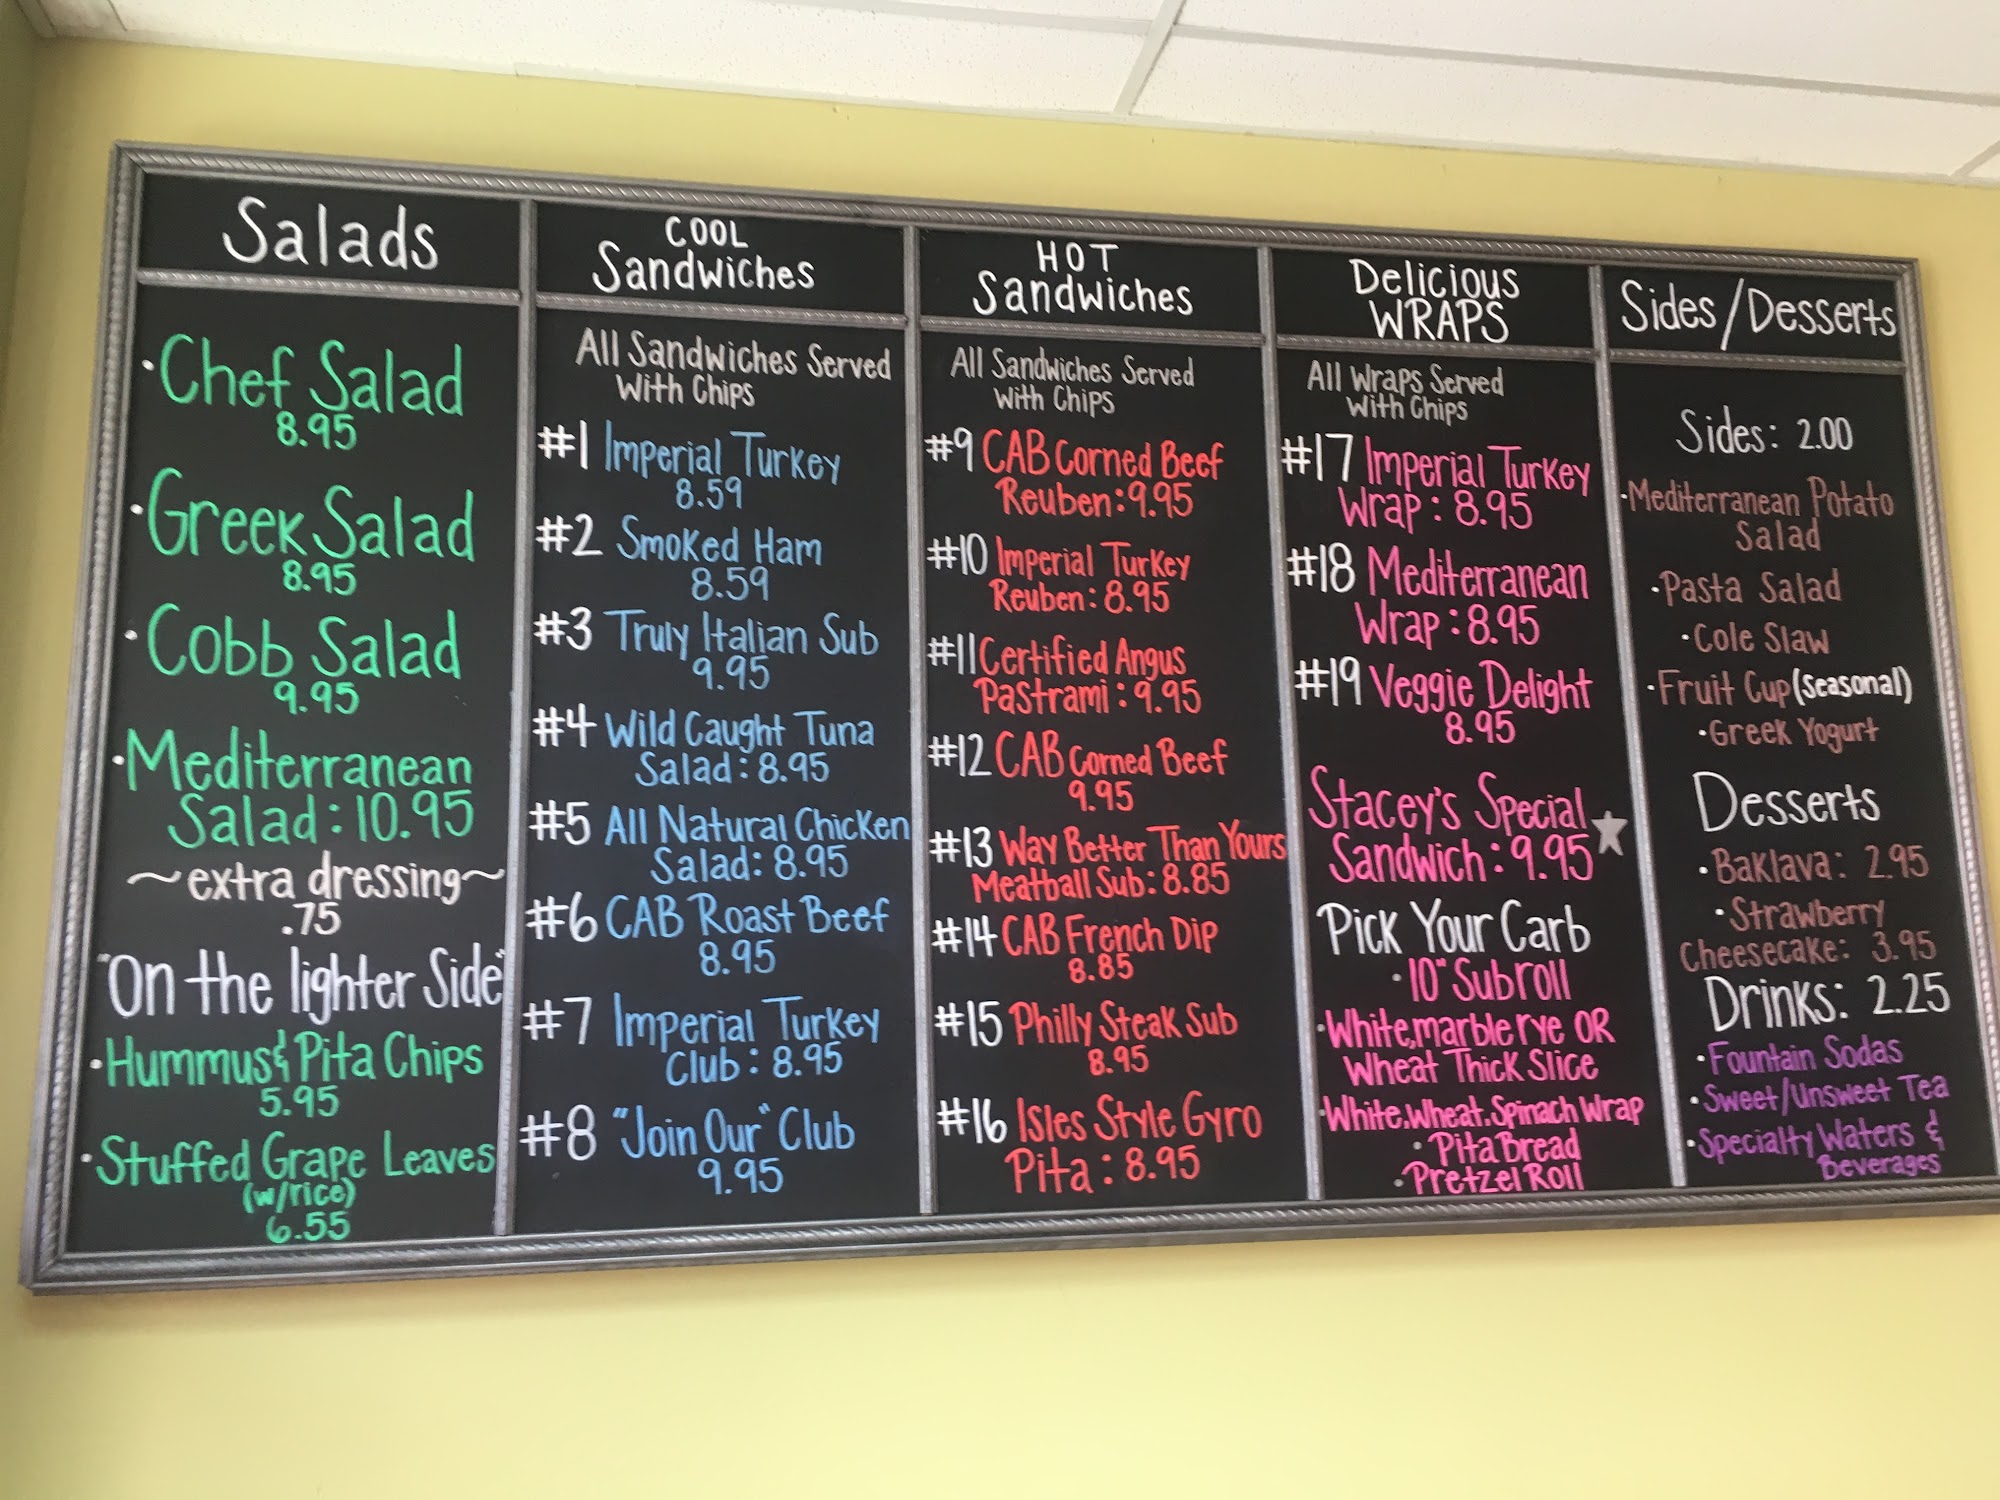 Salads
• Chef Salad
8.95
• Greek Salad
8.95
• Cobb Salad
9.95
• Mediterranean
Salad: 10.95
~extra dressing~
.75
"On the lighter Side"
• Hummus & Pita Chips
5.95
• Stuffed Grape Leaves
(w/rice)
6.55
COOL
Sandwiches
All Sandwiches Served
With Chips
#1 Imperial Turkey
8.59
#2 Smoked Ham
8.59
#3 Truly Italian Sub
9.95
#4 Wild Caught Tuna
Salad: 8.95
#5 All Natural Chicken
Salad: 8.95
#6 CAB Roast Beef
8.95
#7 Imperial Turkey
Club: 8.95
#8 "Join Our" Club
9.95
HOT
Sandwiches
All Sandwiches Served
with Chips
#9 CAB Corned Beef
Reuben: 9.95
#10 Imperial Turkey
Reuben: 8.95
#11 Certified Angus
Pastrami: 9.95
#12 CAB Corned Beef
9.95
#13 Way Better Than Yours
Meatball Sub: 8.85
#14 CAB French Dip
8.85
#15 Philly Steak Sub
8.95
#16 Isles Style Gyro
Pita: 8.95
Delicious
WRAPS
All Wraps Served
With Chips
#17 Imperial Turkey
Wrap: 8.95
#18 Mediterranean
Wrap: 8.95
#19 Veggie Delight
8.95
Stacey's Special
Sandwich: 9.95
Pick Your Carb
• 10" Sub roll
• White, marble rye OR
Wheat Thick Slice
• White, Wheat, Spinach Wrap
• Pita Bread
• Pretzel Roll
Sides/Desserts
Sides: 2.00
• Mediterranean Potato
Salad
• Pasta Salad
• Cole Slaw
• Fruit Cup (seasonal)
• Greek Yogurt
Desserts
• Baklava: 2.95
• Strawberry
Cheesecake: 3.95
Drinks: 2.25
• Fountain Sodas
• Sweet/Unsweet Tea
• Specialty Waters &
Beverages